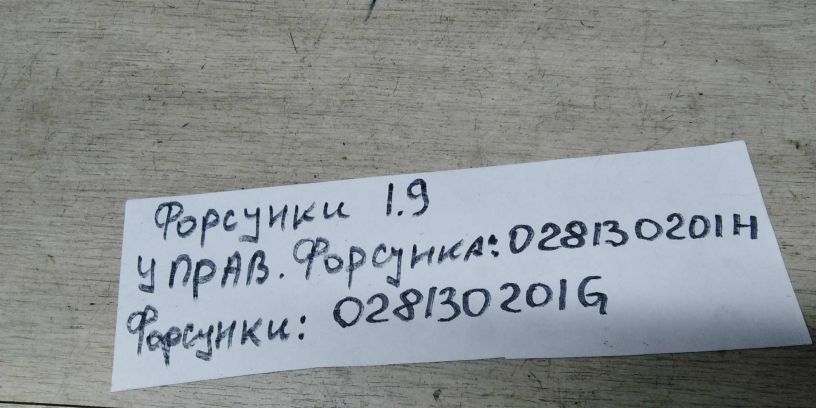 Форсунки 1.9
УПРАВ. Форсунка: 028130201H
Форсунки: 028130201G